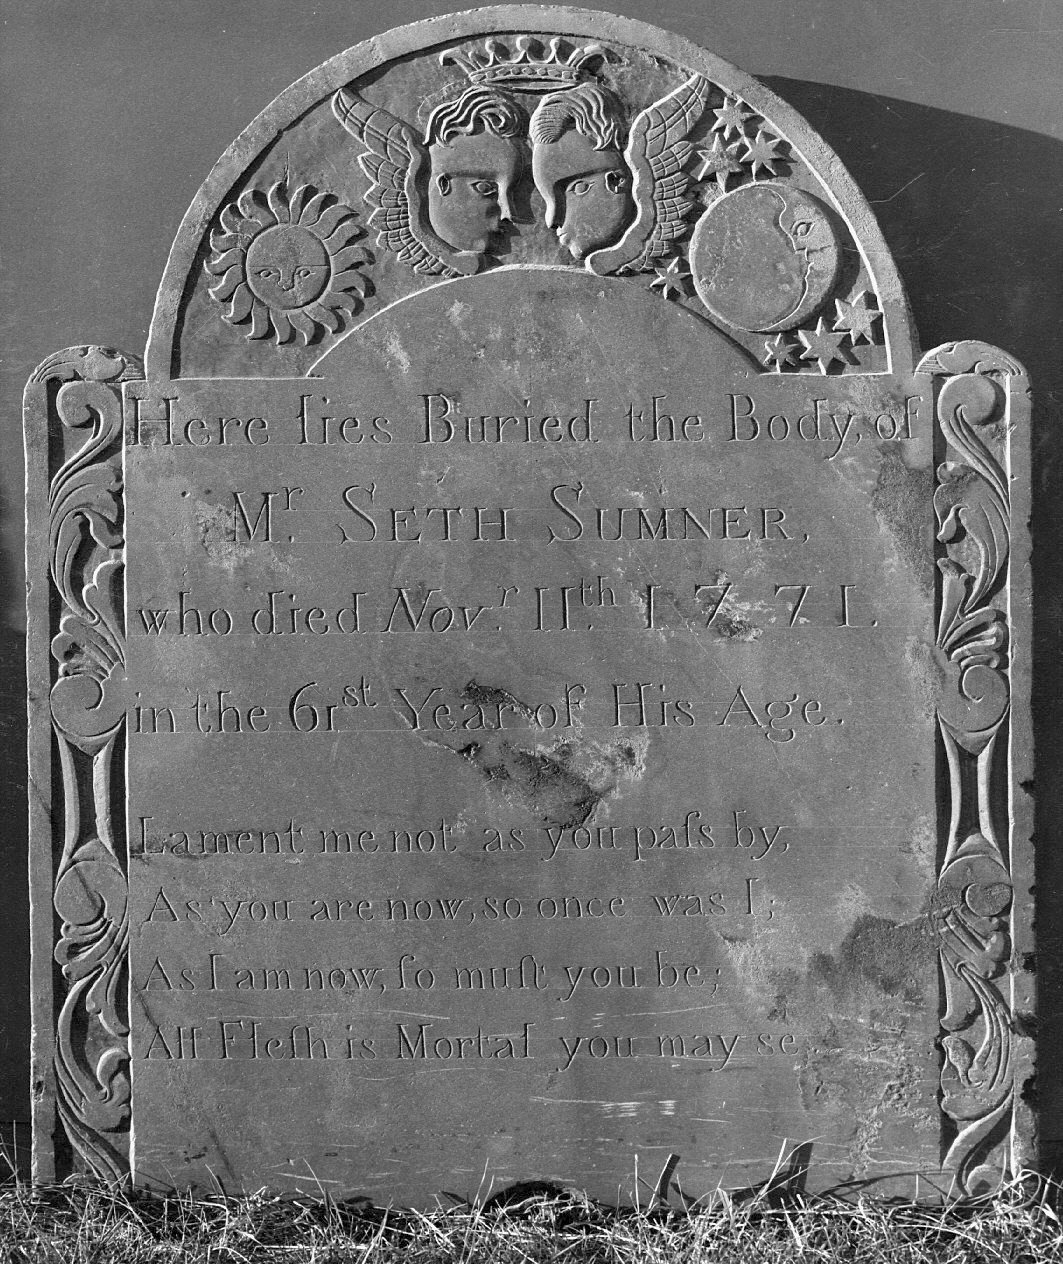 Here lies Buried the Body, of
Mr. SETH SUMNER,
who died Novr. 11th. 1771.
in the 61st Year of His Age.
Lament me not as you paſs by,
As you are now, so once was I,
As I am now, ſo muſt you be;
All Fleſh is Mortal you may se